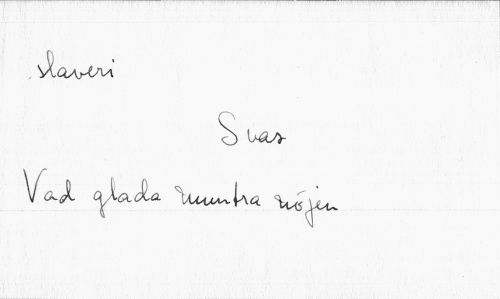 slaveri
Svar
Vad glada muntra nöjen